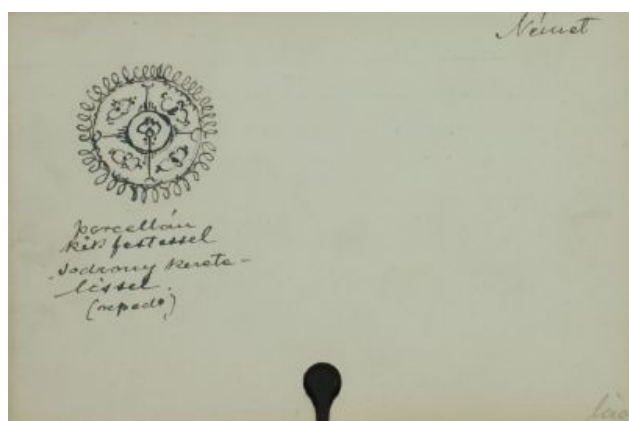 Német
porcellán
kék festéssel
sodrony kerete-
léssel.
(repedt)